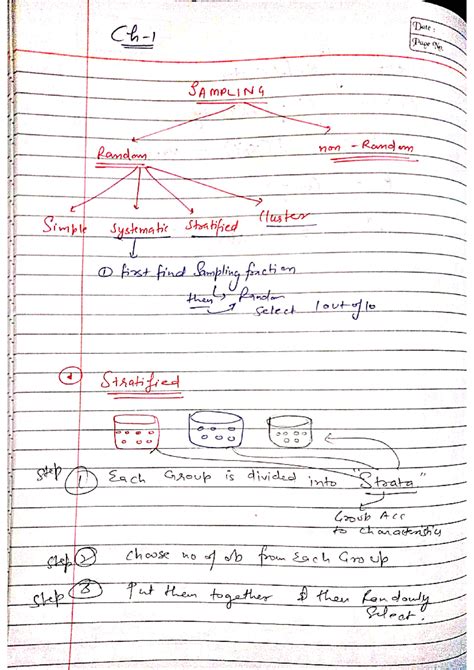 Date :
Page No.
Ch-1
SAMPLING
Random
non - Random
Simple Systematic Stratified Cluster
① first find Sampling fraction
then Random
select 1 out of 10
Stratified
Step ① Each Group is divided into "Strata"
Group Acc
to characteristics
Step ② choose no of ob from Each Group
Step ③ Put them together & then Randomly
Select.